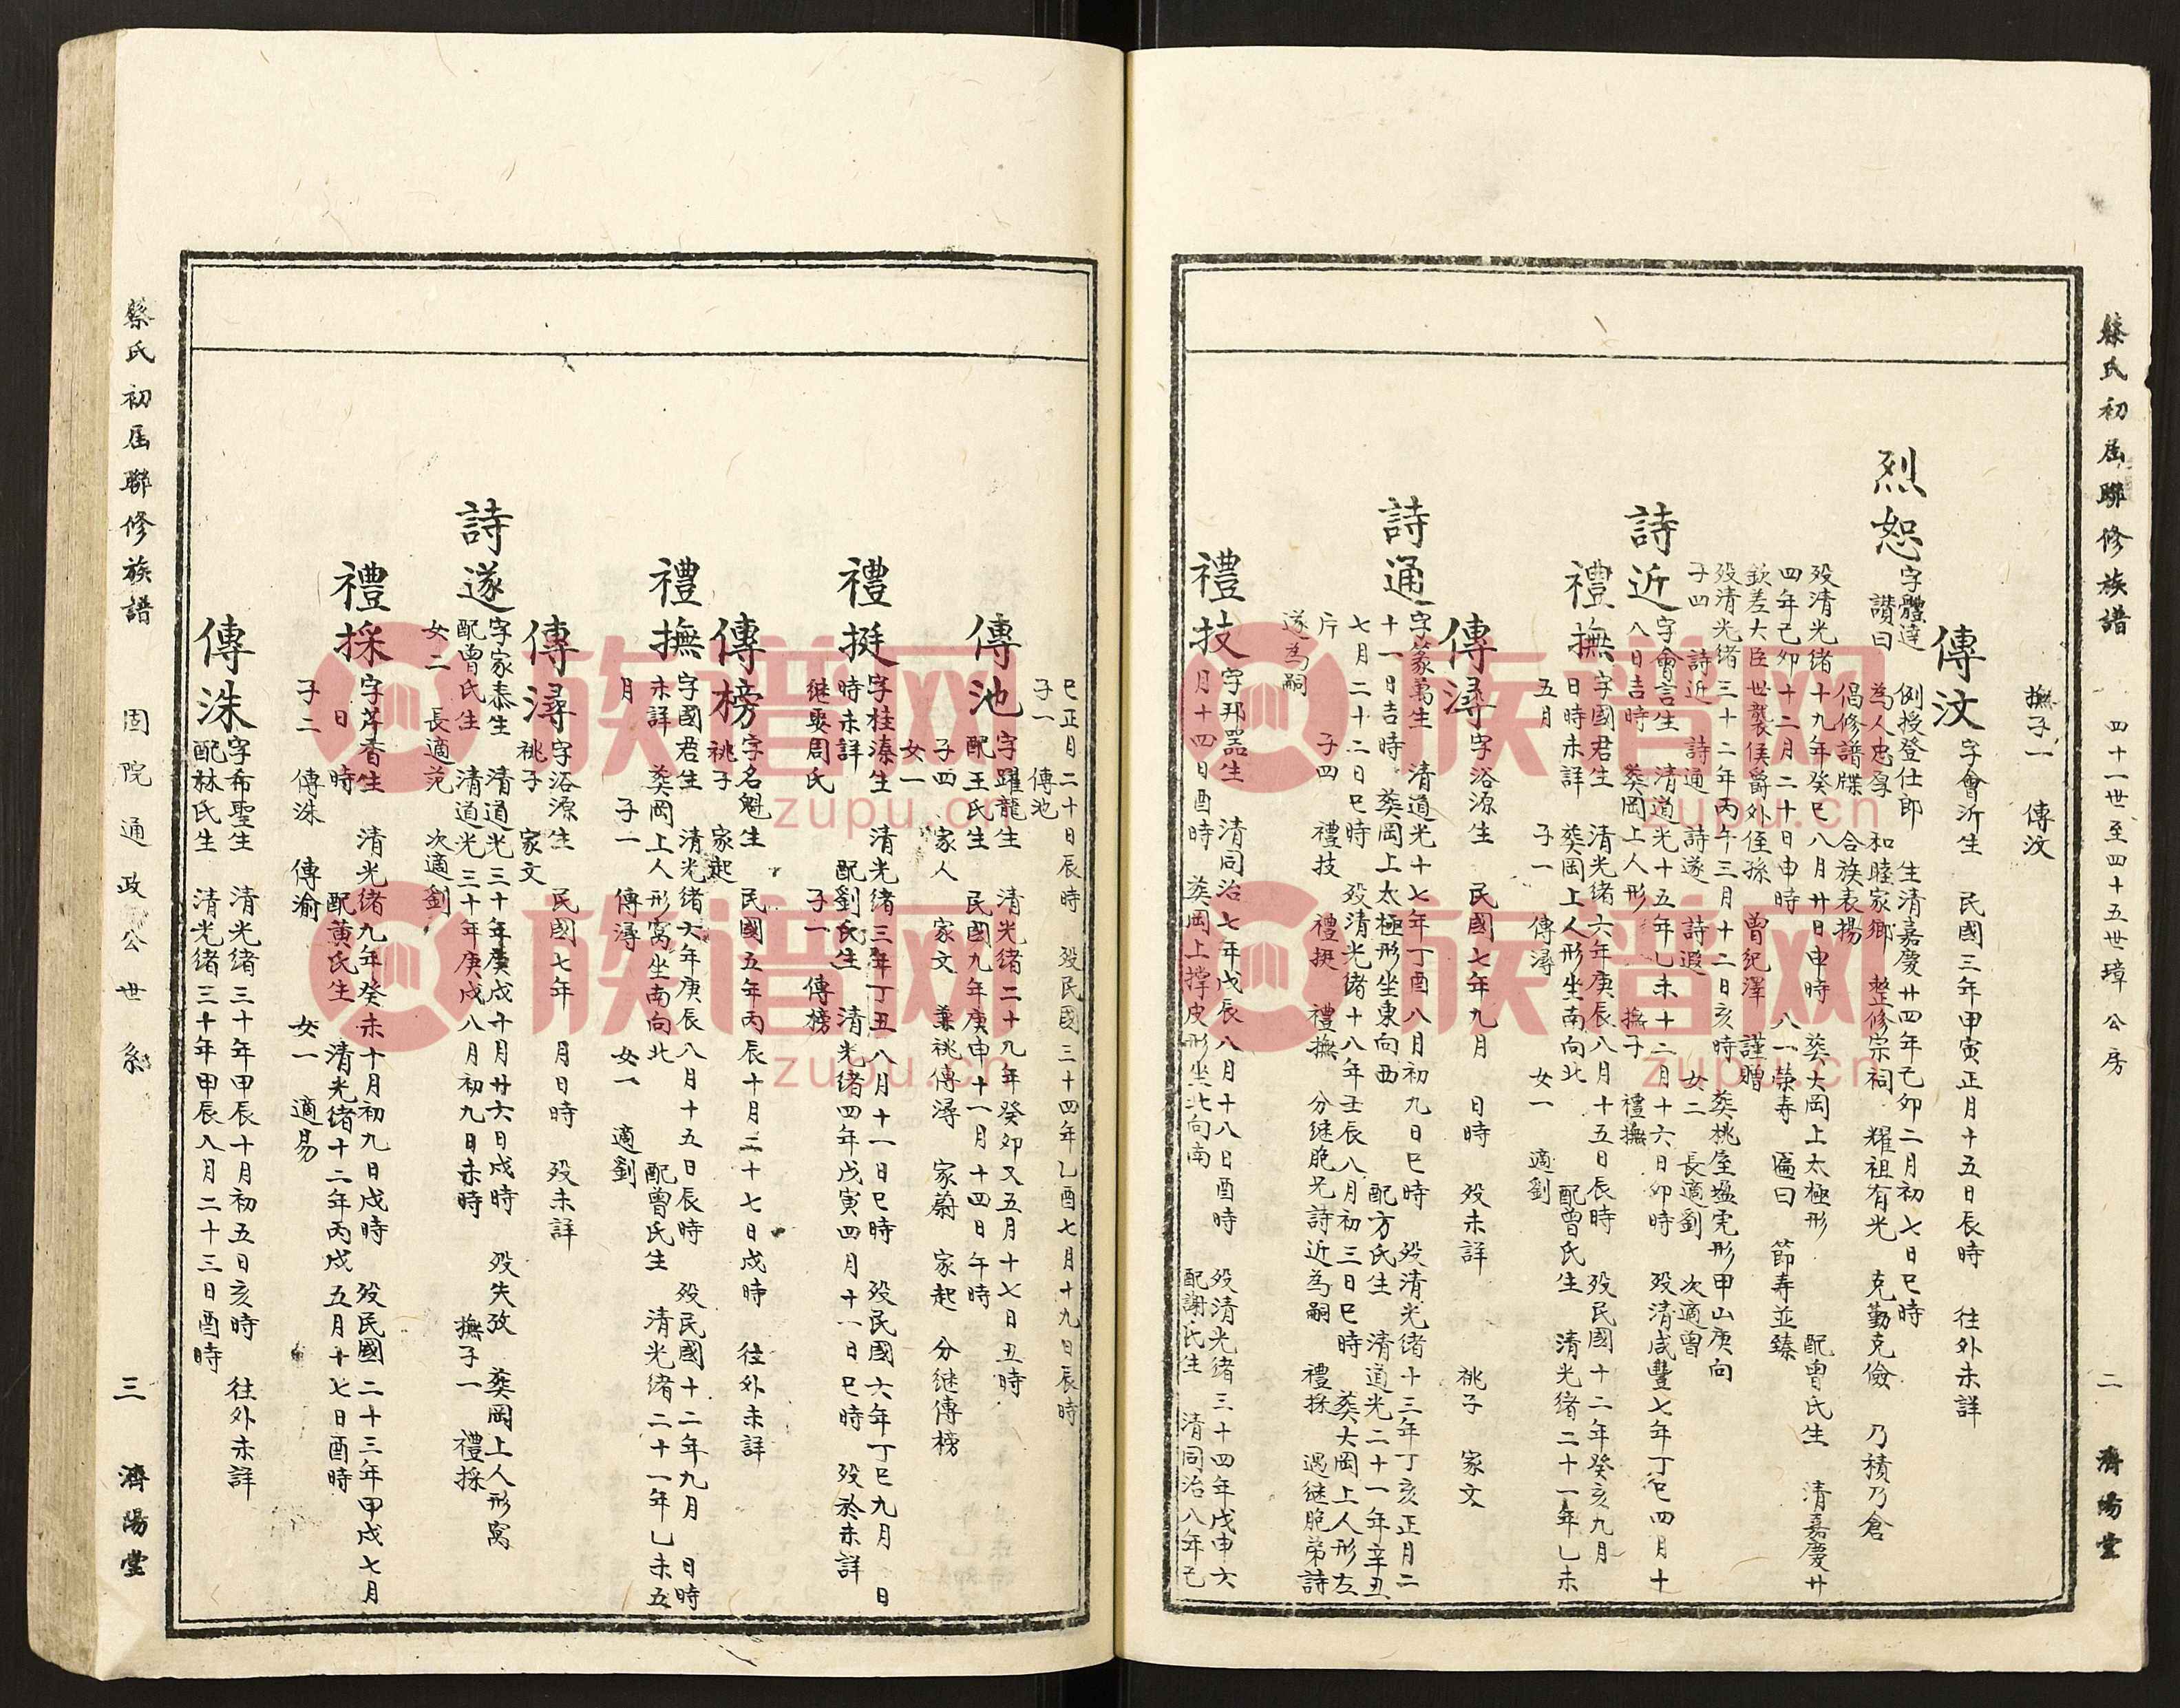 蔡氏初屆聯修族譜 四十一世至四十五世璋公房 二 濟陽堂
撫子一 傳汶
傳汶 字會沂生 民國三年甲寅正月十五日辰時 往外未詳
烈恕 字體達 例授登仕郎 生清嘉慶廿四年己卯二月初七日巳時
讚曰 為人忠孚 和睦家鄉 整修宗祠 耀祖有光 克勤克儉 乃積乃倉
倡修譜牒 合族表揚
歿清光緒十九年癸巳八月廿日申時 葬大岡上太極形 配曾氏生 清嘉慶廿
四年己卯十二月二十日申時 八一榮壽 匾曰 節壽並臻
欽差大臣世襲侯爵外侄孫 曾紀澤 謹贈
歿清光緒三十二年丙午三月十二日亥時 葬桃屋塩宪形甲山庚向
子四 詩近 詩通 詩遂 詩遐 女二 長適劉 次適曾
詩近 字會言生 清道光十五年乙未十二月十六日卯時 歿清咸豐七年丁巳四月十
八日吉時 葬岡上人形 撫子 禮撫
禮撫 字國君生 清光緒六年庚辰八月十五日辰時 歿民國十二年癸亥九月
日時未詳 葬岡上人形坐南向北 配曾氏生 清光緒二十一年乙未
五月 子一 傳潯 女一 適劉
傳潯 字浴源生 民國七年九月 日時 歿未詳 祧子 家文
詩通 字篆第生 清道光十七年丁酉八月初九日巳時 歿清光緒十三年丁亥正月二
十一日吉時 葬岡上太極形坐東向西 配方氏生 清道光二十一年辛丑
七月二十二日巳時 歿清光緒十八年壬辰八月初三日巳時 葬大岡上人形左
片 子四 禮技 禮挺 禮撫 分継胞兄詩近為嗣 禮採 過継胞弟詩
遂為嗣
禮技 字邦器生 清同治七年戊辰八月十八日酉時 歿清光緒三十四年戊申六
月十四日酉時 葬岡上撑皮形坐北向南 配謝氏生 清同治八年己
巳正月二十日辰時 歿民國三十四年乙酉七月十九日辰時
子一 傳池
傳池 字躍龍生 清光緒二十九年癸卯又五月十七日丑時
配王氏生 民國九年庚申十一月十四日午時
子四 家人 家文 兼祧傳潯 家蔚 家起 分継傳榜
女一
禮挺 字桂湊生 清光緒三年丁丑八月十一日巳時 歿民國六年丁巳九月 日
時未詳 配劉氏生 清光緒四年戊寅四月十一日巳時 歿於未詳
継娶周氏 子一 傳榜
傳榜 字名魁生 民國五年丙辰十月二十七日戌時 往外未詳
祧子 家起
禮撫 字國君生 清光緒六年庚辰八月十五日辰時 歿民國十二年九月 日時
未詳 葬岡上人形窩坐南向北 配曾氏生 清光緒二十一年乙未五
月 子一 傳潯 女一 適劉
傳潯 字浴源生 民國七年 月日時 歿未詳
祧子 家文
詩遂 字家泰生 清道光三十年庚戌十月廿六日戌時 歿失攷 葬岡上人形窩
配曾氏生 清道光三十年庚戌八月初九日未時 撫子一 禮採
女二 長適范 次適劉
禮採 字芹香生 清光緒九年癸未十月初九日戌時 歿民國二十三年甲戌七月
日 時 配黃氏生 清光緒十二年丙戌五月十七日酉時
子二 傳洙 傳渝 女一 適易
傳洙 字布聖生 清光緒三十年甲辰十月初五日亥時 往外未詳
配林氏生 清光緒三十年甲辰八月二十三日酉時
蔡氏初屆聯修族譜 固院通政公世系 三 濟陽堂
族谱网
zupu.cn
族谱网
zupu.cn
族谱网
zupu.cn
族谱网
zupu.cn